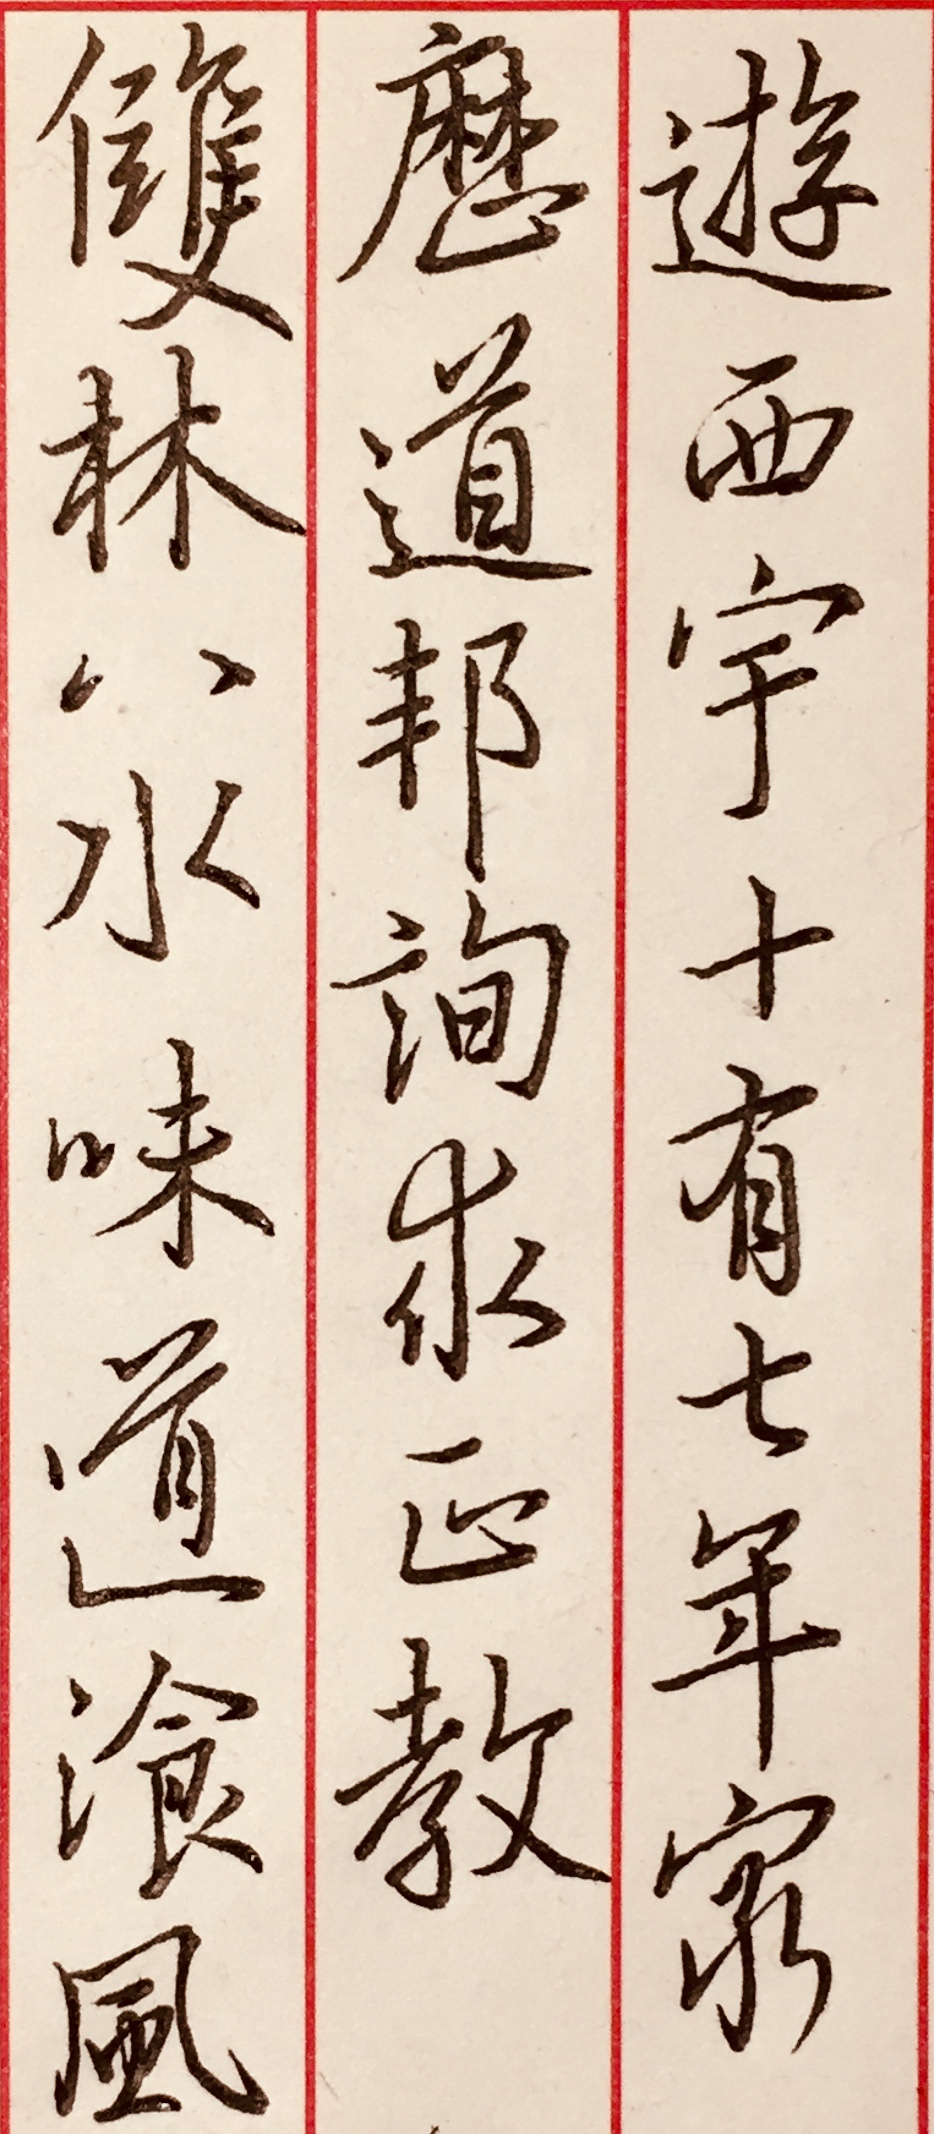 遊西宇十有七年窮
歷道邦詢求正教
雙林八水味道湌風